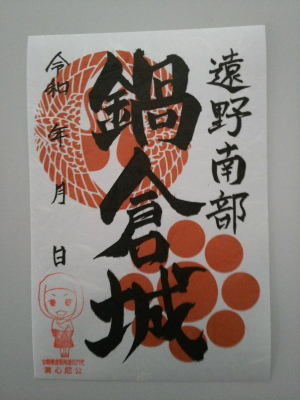 遠野南部
鍋倉城
令和 年 月 日
清心尼公